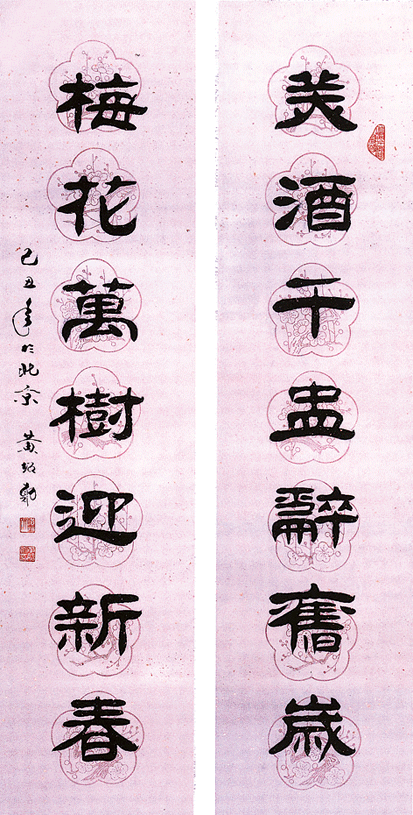 美酒千盅辭舊歲
梅花萬樹迎新春
己丑年於北京 黄